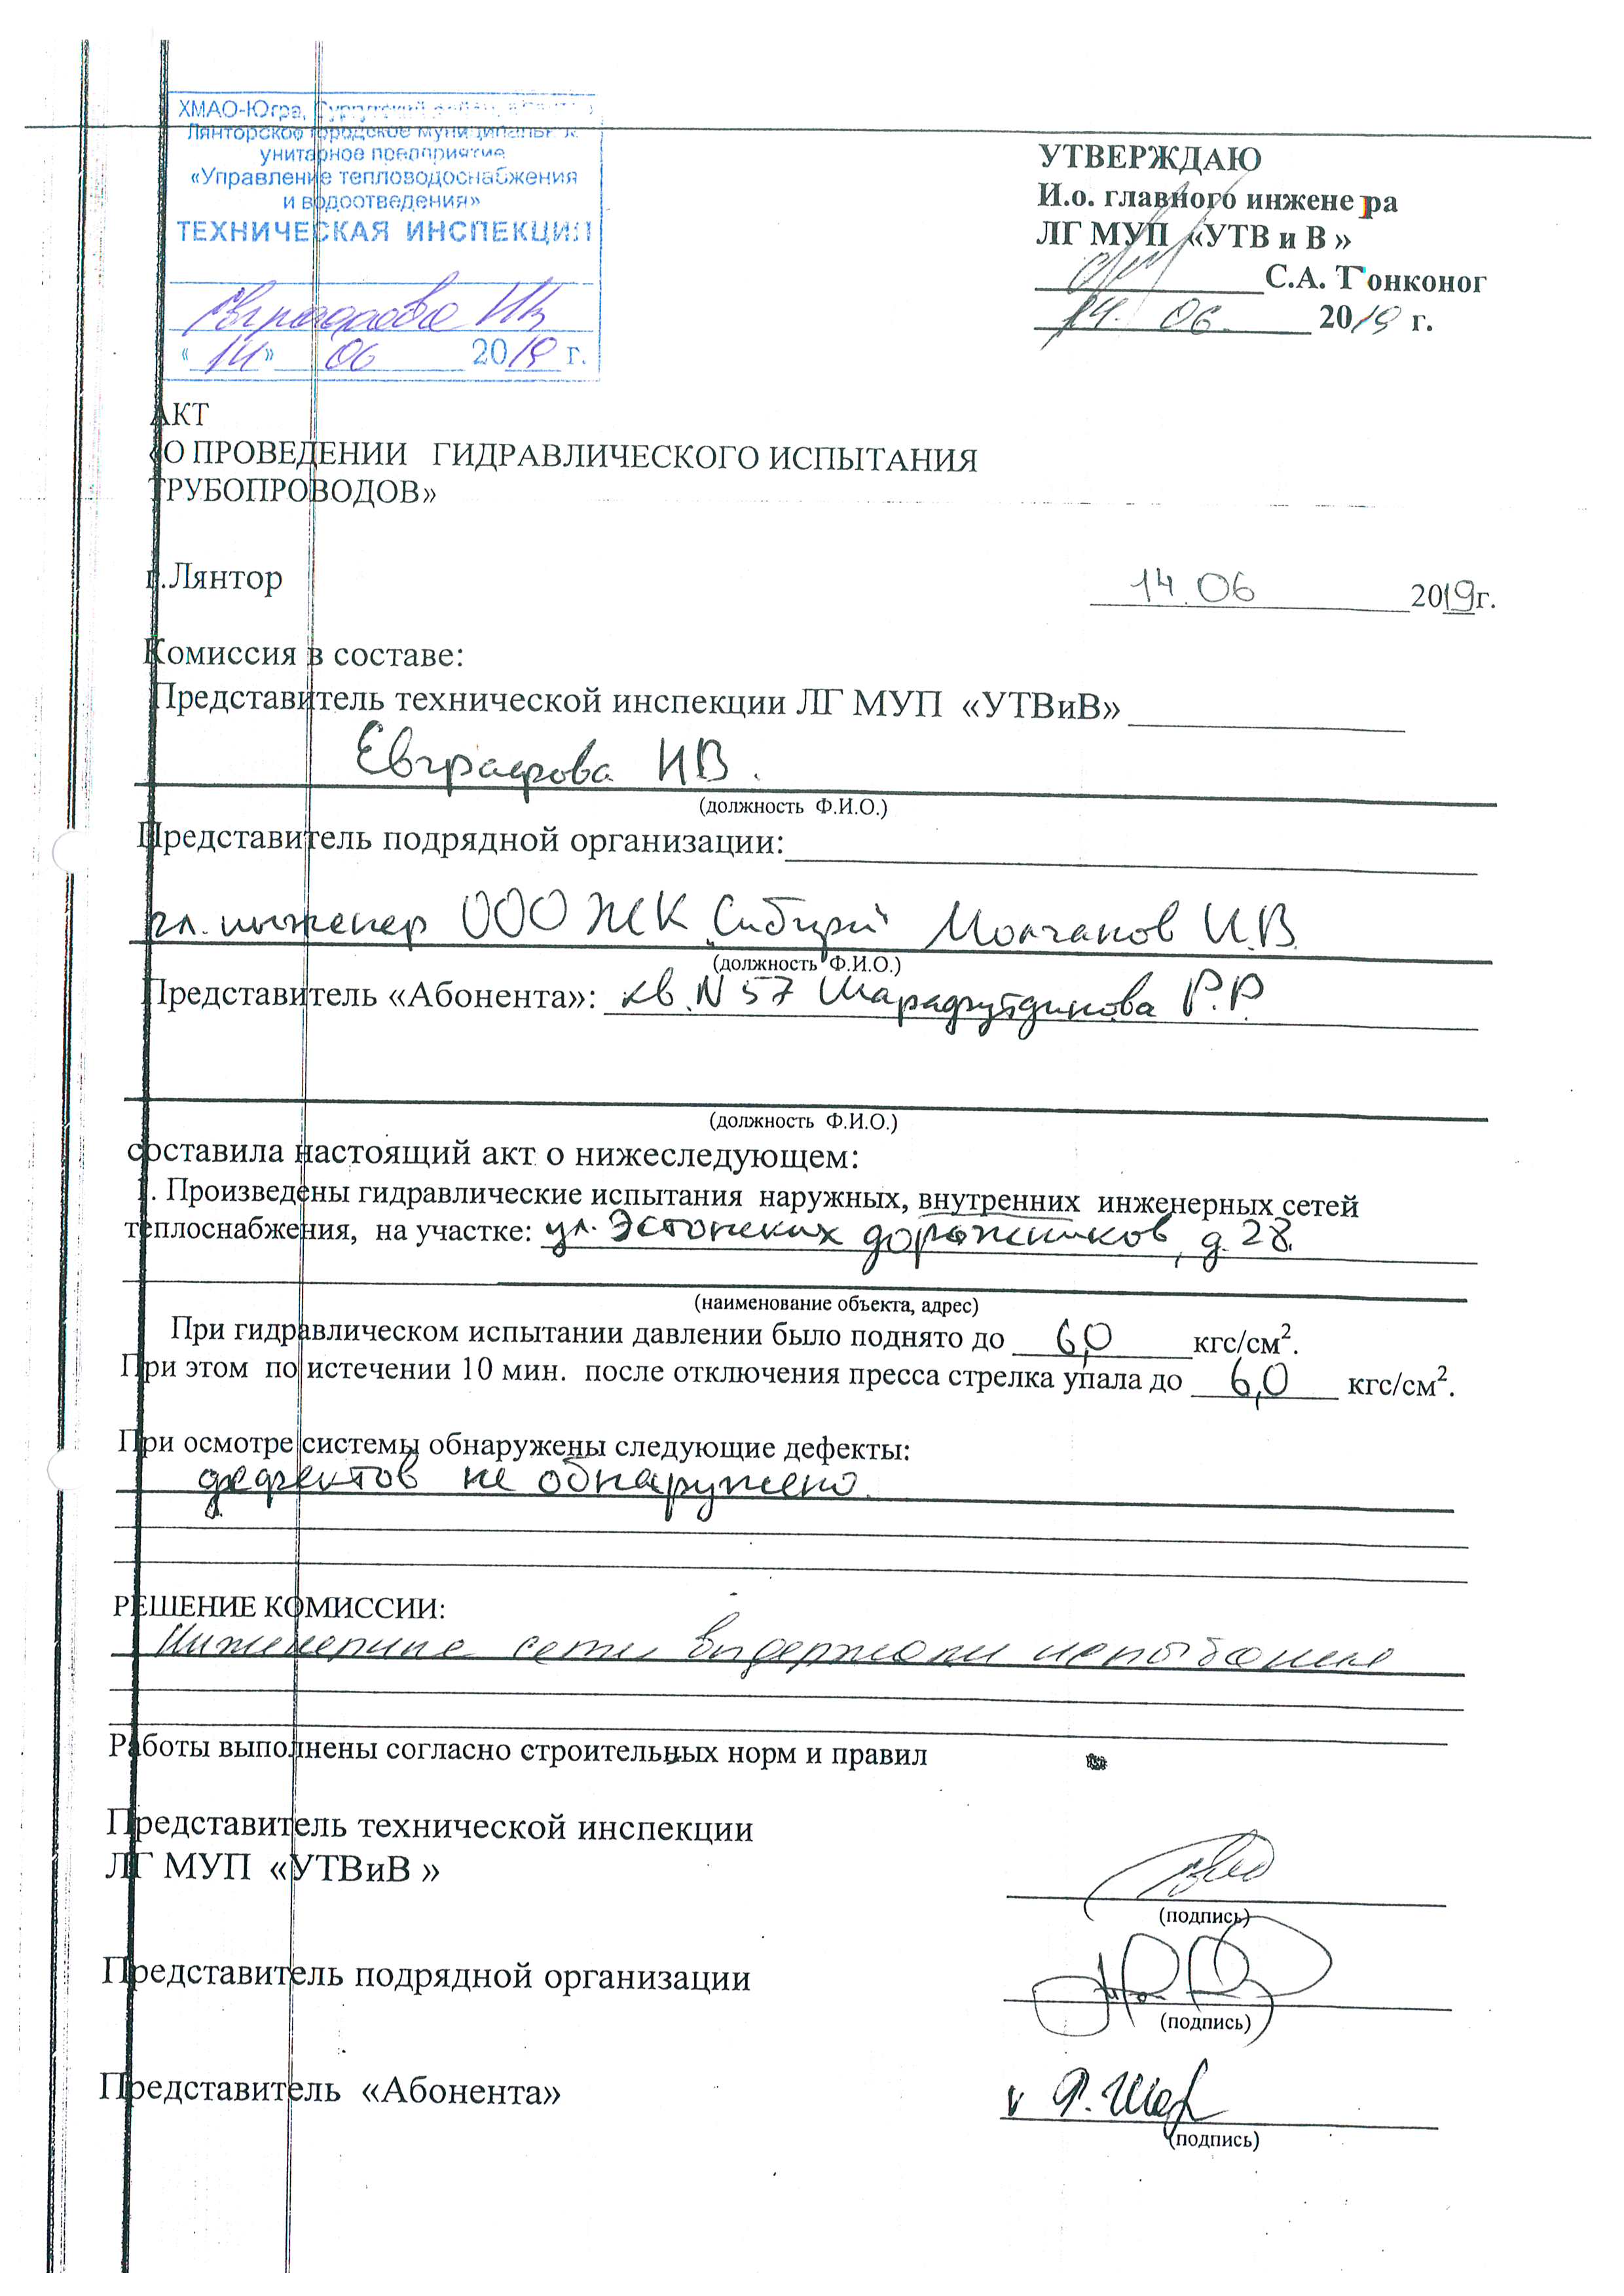 ХМАО-Югра, Сургутский район,
Лянторское городское муниципальное
унитарное предприятие
«Управление тепловодоснабжения
и водоотведения»
ТЕХНИЧЕСКАЯ ИНСПЕКЦИЯ
Евграфова ИВ
«14» 06 2019 г.
УТВЕРЖДАЮ
И.о. главного инженера
ЛГ МУП «УТВ и В »
С.А. Тонконог
14. 06. 2019 г.
АКТ
«О ПРОВЕДЕНИИ ГИДРАВЛИЧЕСКОГО ИСПЫТАНИЯ
ТРУБОПРОВОДОВ»
г.Лянтор 14.06 2019г.
Комиссия в составе:
Представитель технической инспекции ЛГ МУП «УТВиВ»
Евграфова ИВ.
(должность Ф.И.О.)
Представитель подрядной организации:
гл. инженер ООО ЖК „Сибири" Молчанов И.В.
(должность Ф.И.О.)
Представитель «Абонента»: кв. N 57 Шарафутдинова Р.Р.
(должность Ф.И.О.)
составила настоящий акт о нижеследующем:
1. Произведены гидравлические испытания наружных, внутренних инженерных сетей
теплоснабжения, на участке: ул. Эстонских дорожников, д. 28.
(наименование объекта, адрес)
При гидравлическом испытании давлении было поднято до 6,0 кгс/см².
При этом по истечении 10 мин. после отключения пресса стрелка упала до 6,0 кгс/см².
При осмотре системы обнаружены следующие дефекты:
дефектов не обнаружено.
РЕШЕНИЕ КОМИССИИ:
Инженерные сети выдержали испытание
Работы выполнены согласно строительных норм и правил
Представитель технической инспекции
ЛГ МУП «УТВиВ »
(подпись)
Представитель подрядной организации
(подпись)
Представитель «Абонента»
v Р. Шар
(подпись)